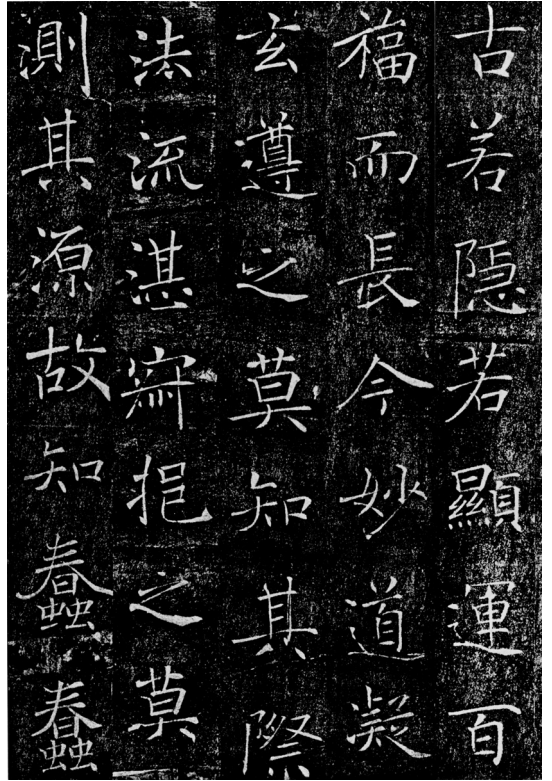 古若隱若顯運百
福而長今妙道凝
玄遵之莫知其際
法流湛寂挹之莫
測其源故知蠢蠢